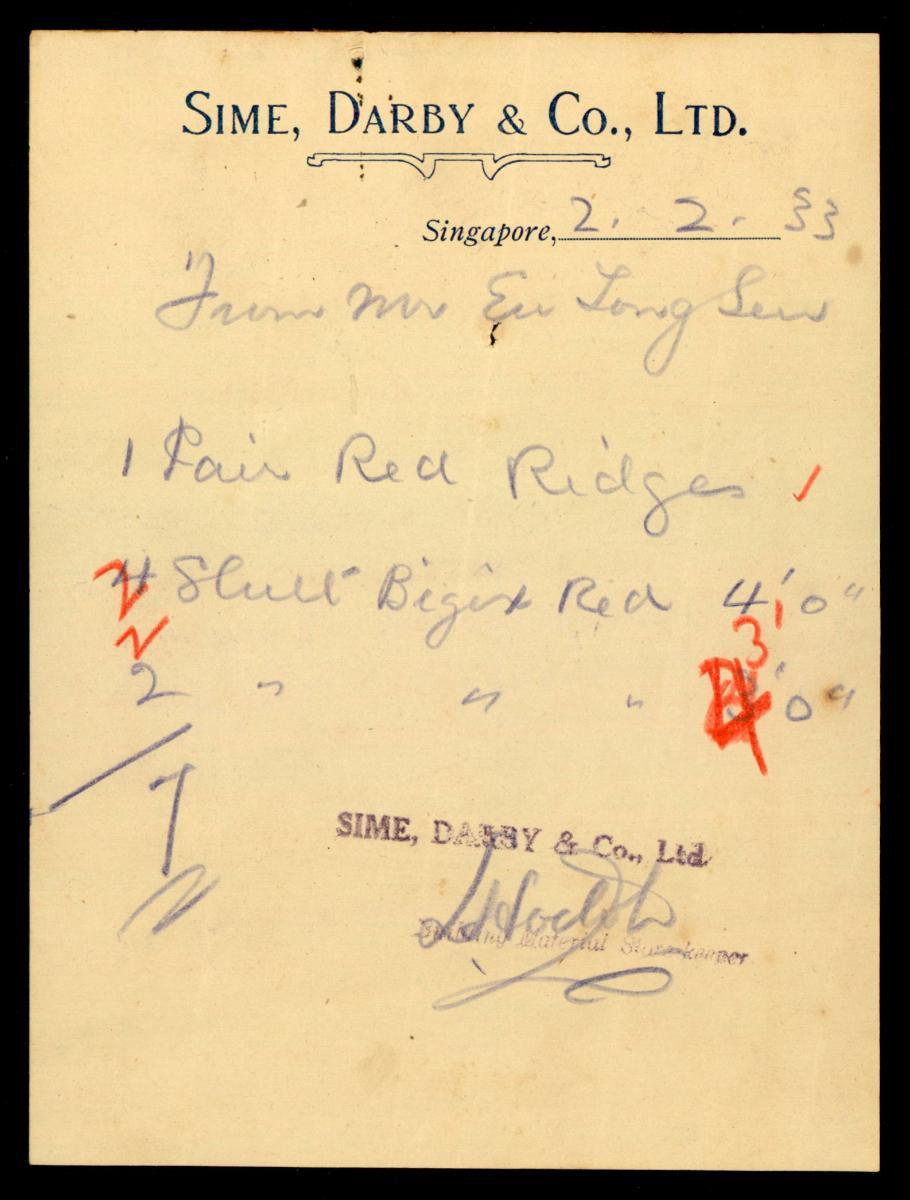 SIME, DARBY & CO., LTD.
Singapore, 2. 2. 33
From Mr Eu Tong Sen
1 Pair Red Ridges ✓
4 Bigsix Red 4' 0"
3
2 " " " ' 0"
7
SIME, DARBY & Co., Ltd.
Building Material Storekeeper